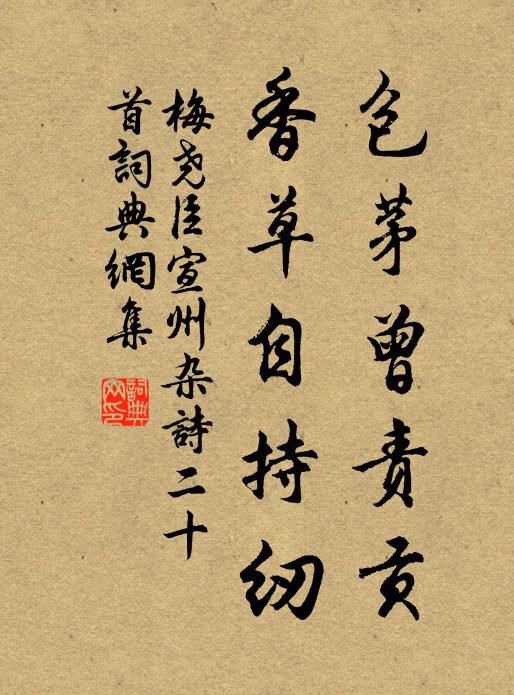 包茅曾责贡
香草自持纫
梅尧臣宣州杂詩二十
首詞典網集
詞典
网印